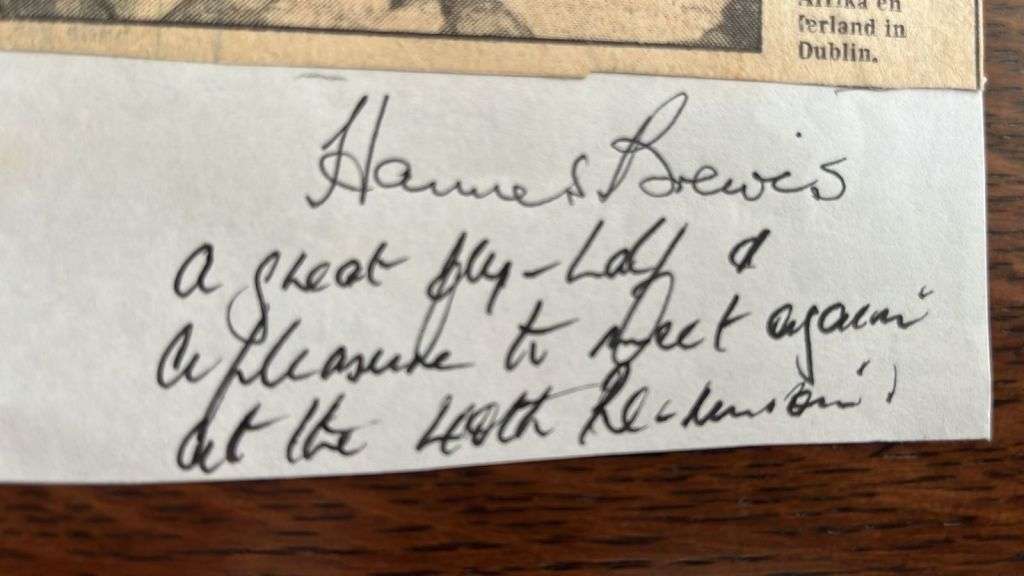 Afrika en
Ierland in
Dublin.
Hannes Brewis
a great fly-half &
a pleasure to meet again
at the 40th Re-union!